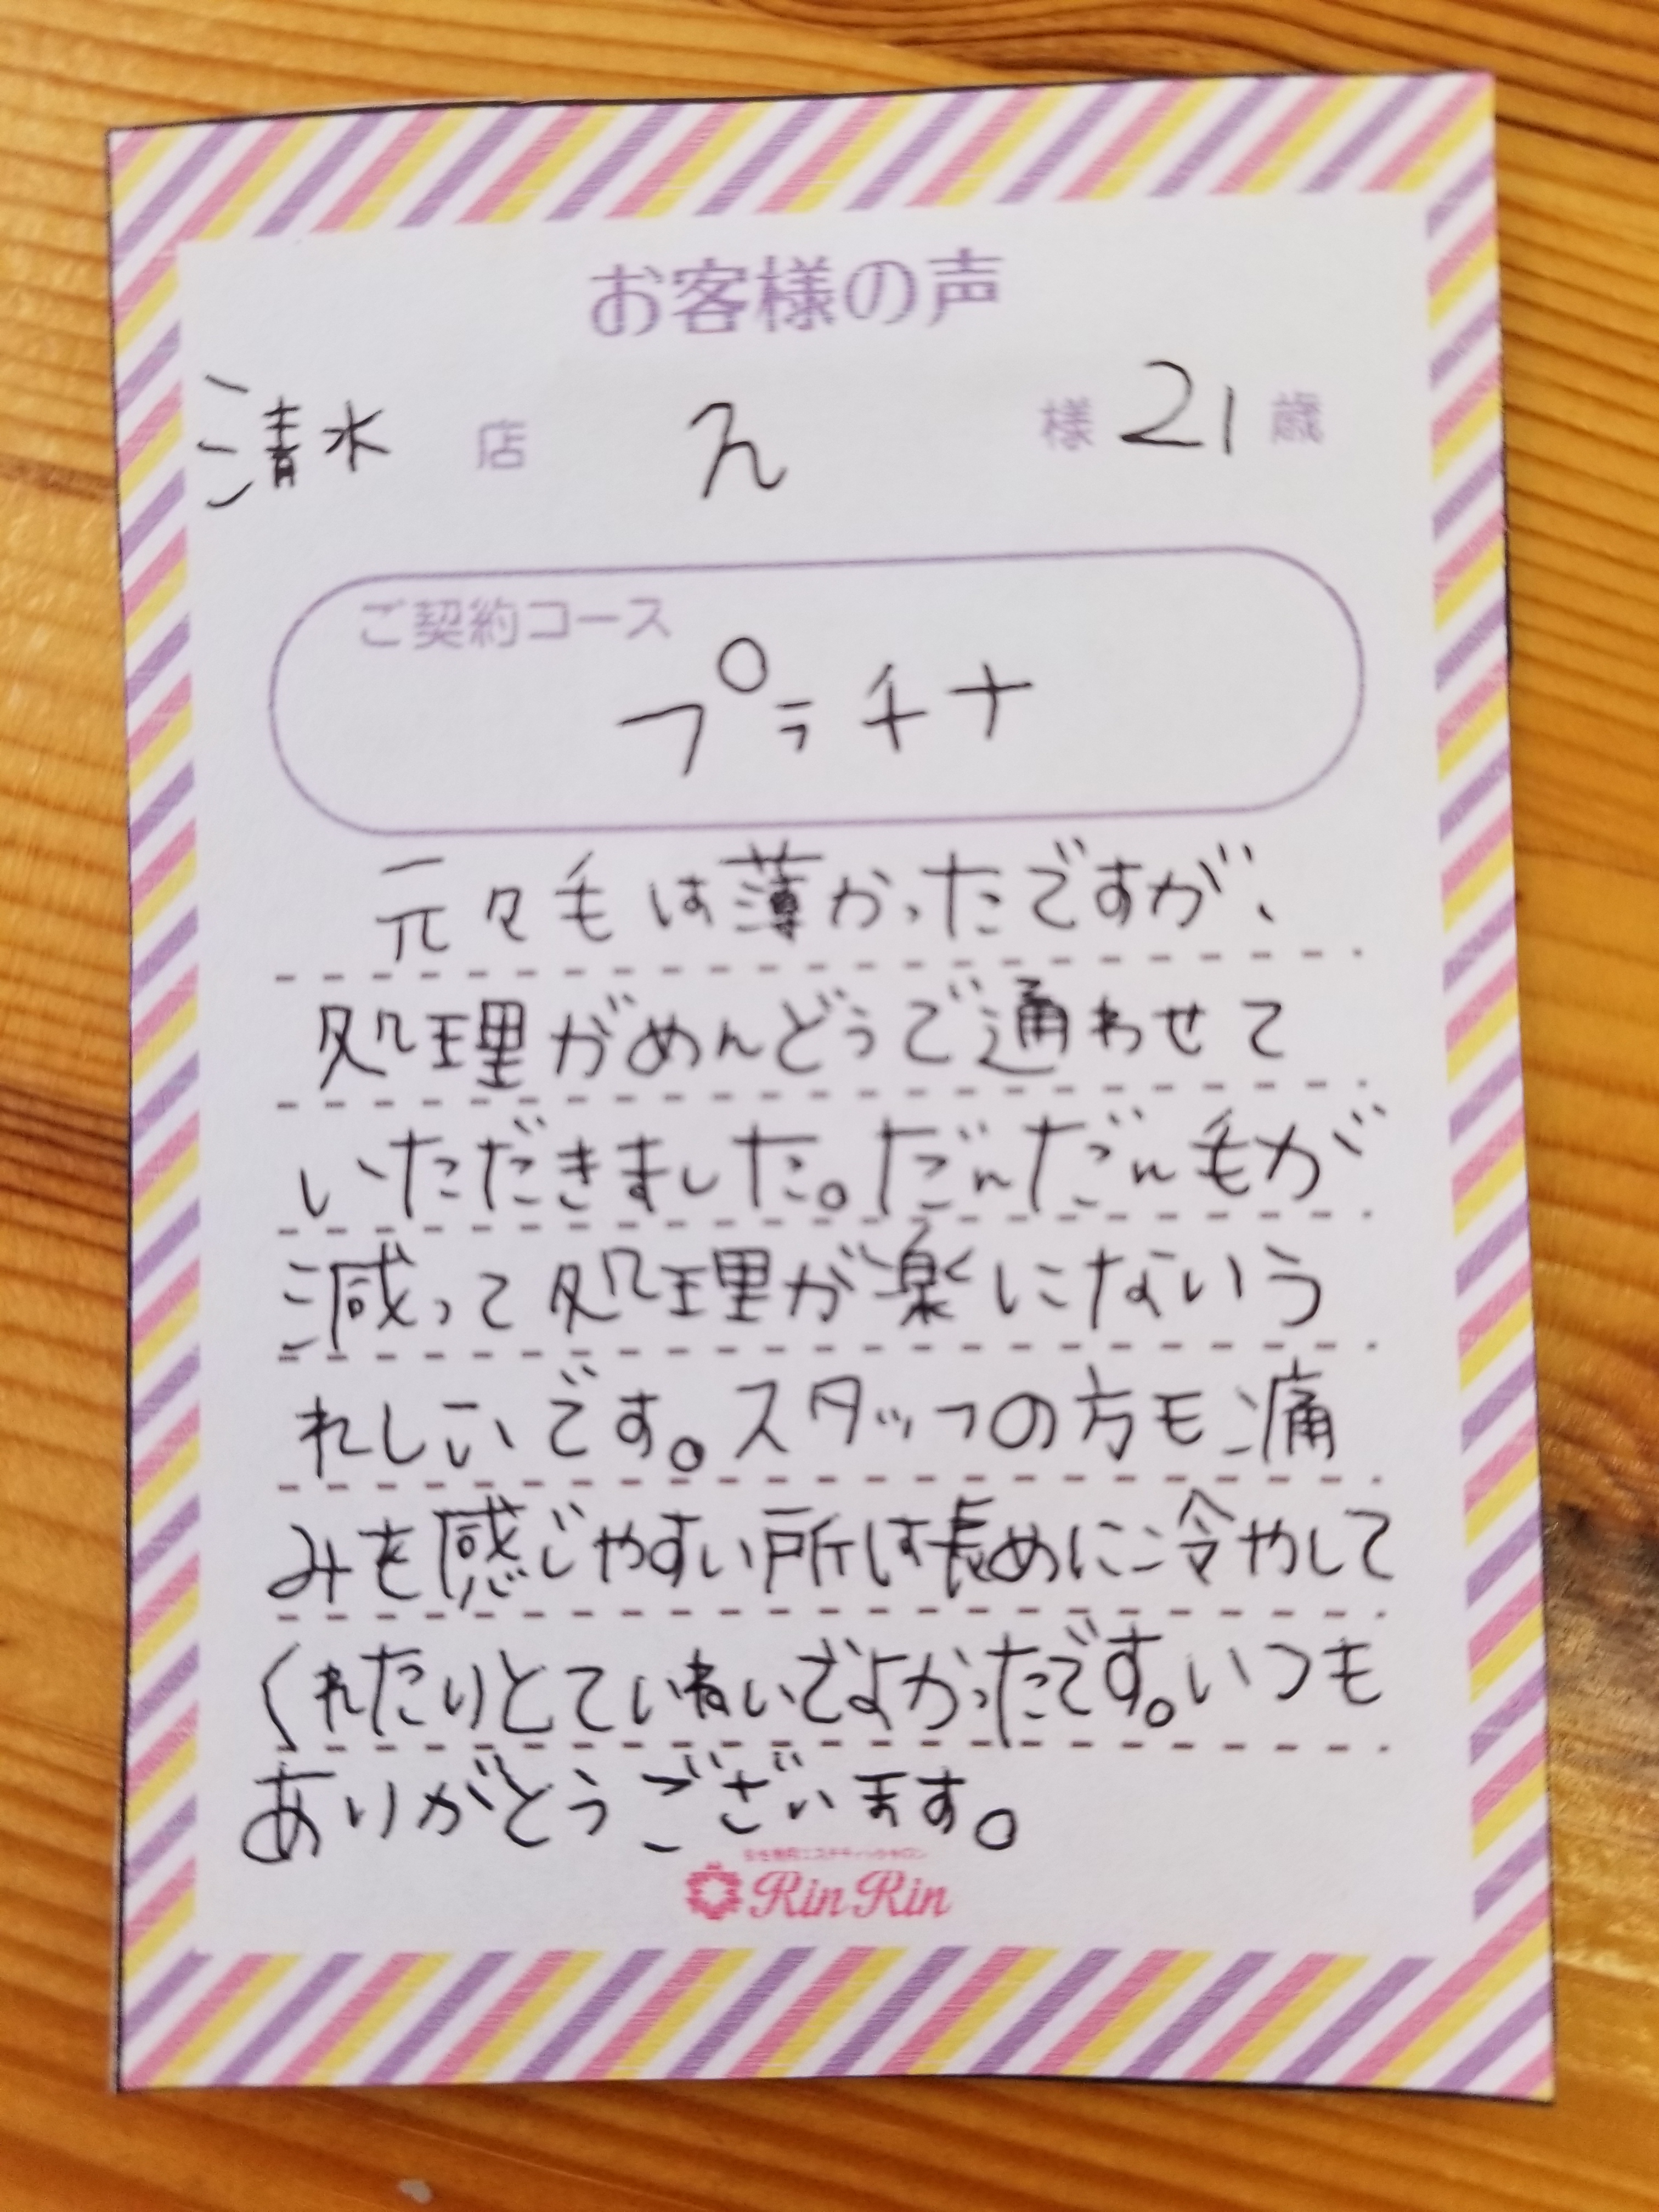 お客様の声
清水 店 え 様 21 歳
ご契約コース
プラチナ
元々毛は薄かったですが、
処理がめんどうで通わせて
いただきました。だんだん毛が
減って処理が楽にないう
れしいです。スタッフの方も痛
みを感じやすい所は長めに冷やして
くれたりとていねいでよかったです。いつも
ありがとうございます。
RinRin